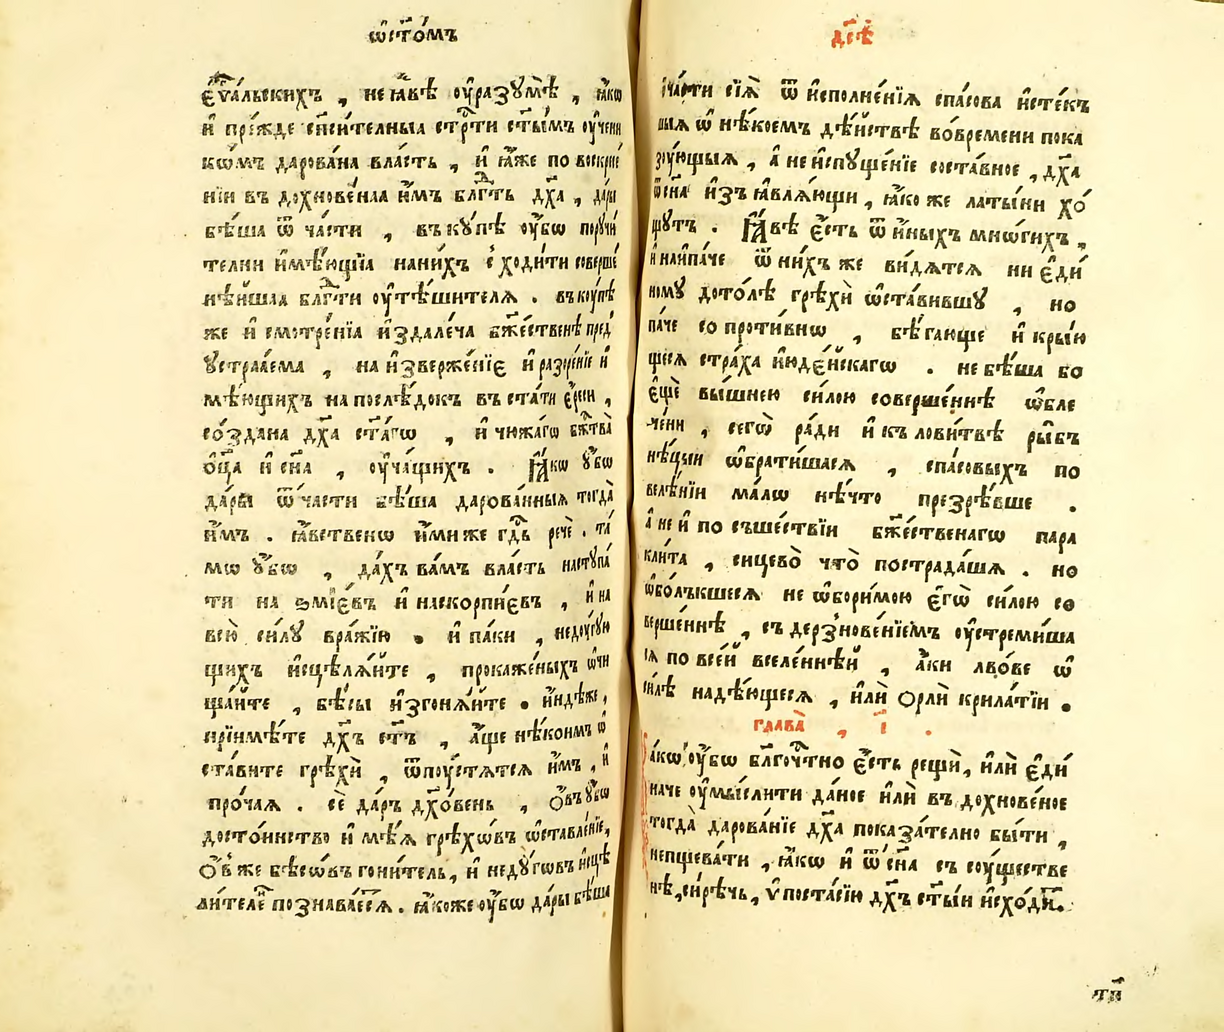 ѡ҆ст҃омъ
є҆ѵа́льскихъ , не ꙗ҆́вѣ ᲂу҆разꙋмѣ̀ , ꙗ҆́кѡ
и҆ пре́жде сп҃си́телныѧ стр҇ти ст҃ы́мъ ᲂу҆чени
кѡ́мъ дарова́на вла́сть , и҆ ꙗ҆́же по воскрⷭ҇е
нїи въ дохнове́наѧ и҆̀мъ блгⷣть дх҃а , да́ры
бѣ́ша ѿ ча́сти , въ кꙋ́пѣ ᲂу҆́бѡ порꙋчи́
телни и҆мѣ́ющїѧ на ни́хъ с ходи́ти соверше́
нѣ́йшаѧ блгⷣти ᲂу҆тѣ́шителѧ . въ кꙋ́пѣ
же и҆ смотре́нїѧ и҆здале́ча бж҃е́ственѣ пред̾
ꙋстраѧ́ема , на и҆зверже́нїе и҆ разоре́нїе и҆
мѣ́ющихъ на послѣ́докъ въстати є҆́реси ,
со́здана дх҃а ст҃а́гѡ , и҆ чюжа́гѡ бж҃тва̀
ѻ҆ц҃а и҆ сн҃а , ᲂу҆ча́щихъ . Ꙗ҆́кѡ ᲂу҆́бѡ
да́ры ѿ ча́сти бѣ́ша дарова́нныѧ тогда̀
и҆̀мъ . ꙗ҆́вственѡ и҆́миже гдⷭ҇ь речѐ . та́
мѡ ᲂу҆́бѡ , да́хъ ва́мъ вла́сть настꙋпа́
ти на ѕмїе́въ и҆ на скорпїе́въ , и҆ на
всю̀ си́лꙋ вра́жїю . и҆ па́ки , недꙋ́гꙋю
щихъ и҆сцѣлѧ́йте , прокаже́ныхъ ѡ҆чи
ща́йте , бѣ́сы и҆згонѧ́йте . и҆ндѣ́же ,
прїимѣ́те дх҃ъ ст҃ъ , а҆́ще нѣ́коимъ ѡ҆
ста́вите грѣхѝ , ѿпꙋ́стѧтсѧ и҆̀мъ , и҆
про́чаѧ . сѐ да́ръ дх҃о́венъ , ѻ҆въ ᲂу҆́бѡ
досто́инство и҆мѣ́ѧ грѣхѡ́въ ѡ҆ставле́нїе ,
ѻ҆́в же бѣсѡ́въ гони́тель , и҆ недꙋ́гѡвъ и҆сцѣ
ли́теле познава́етсѧ . ꙗ҆́коже ᲂу҆́бѡ да́ры бѣ́ша
дс҃ѣ
ча́сти сїѧ̀ ѿ и҆сполне́нїѧ спа́сова и҆сте́къ
шыѧ ѡ҆ нѣ́коемъ дѣ́йствѣ во́ времени пока
зꙋ́ющыѧ , а҆ не и҆спꙋще́нїе соста́вное , дх҃а
ѿ сн҃а и҆зъ ꙗ҆влѧ́ющи , ꙗ҆́ко же латы́ни хо́
щꙋтъ . Ꙗ҆́вѣ є҆́сть ѿ и҆́ныхъ мно́гихъ ,
и҆ наипа́че ѿ ни́хъ же ви́дѧтсѧ ни є҆ди́
номꙋ дото́лѣ грѣхѝ ѡ҆ста́вившꙋ , но
па́че сопроти́внѡ , бѣ́гающе и҆ кры́ю
щесѧ стра́ха и҆юде́йскагѡ . не бѣ́ша бо
є҆щѐ вы́шнею си́лою соверше́ннѣ ѡ҆бле
че́ни , сегѡ̀ ра́ди и҆ къ лови́твѣ ры́бъ
нѣ́цыи ѡ҆брати́шасѧ , спа́совыхъ по
велѣ́нїи ма́лѡ нѣ́что презрѣ́вше .
а҆ не и҆ по съше́ствїи бж҃е́ственагѡ пара
кли́та , сицево̀ что̀ пострада́шѧ . но
ѡ҆боло́къшесѧ не ѡ҆бори́мою є҆гѡ̀ си́лою со
верше́ннѣ , съ дерзнове́нїемъ ᲂу҆стреми́ша
сѧ по все́й вселе́ннѣй , а҆́ки льво́ве ѡ҆
си́лѣ надѣ́ющесѧ , и҆лѝ ѻ҆рлѝ крила́тїи .
глава̀ , і҃ .
а́кѡ ᲂу҆́бѡ блгⷪ҇че́тно є҆́сть рещѝ , и҆лѝ є҆ди́
наче ᲂу҆мы́слити да́ное и҆лѝ въ дохнове́ное
тогда̀ дарова́нїе дх҃а показа́телно бы́ти ,
непщева́ти , ꙗ҆́кѡ и҆ ѿ сн҃а съ сꙋ́ществе
нѣ , си́рѣчь , ѵ҆поста́сїю дх҃ъ ст҃ы́и и҆схо́ди́.
ти